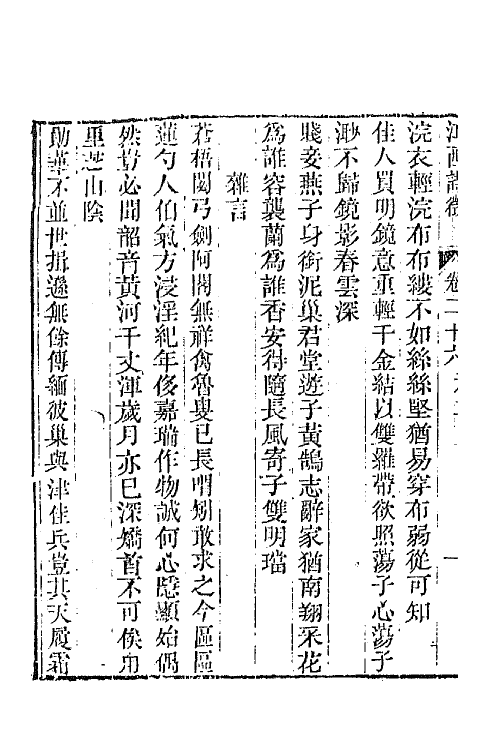 江西詩徵 卷二十六
浣衣輕浣布布縷不如絲絲堅猶易穿布弱從可知
佳人買明鏡意重輕千金結以雙羅帶欲照蕩子心蕩子
渺不歸鏡影春雲深
賤妾燕子身銜泥巢君堂遊子黃鵠志辭家猶南翔采花
為誰容襲蘭為誰香安得隨長風寄子雙明璫
雜言
蒼梧閟弓劍阿閣無祥禽魯叟已長喟矧敢求之今區區
蓮勺人伯氣方浸淫紀年侈嘉瑞作物誠何心隱顯始偶
然豈必聞韶音黃河千丈渾歲月亦已深矯首不可俟用
里芝山陰
勛華不並世揖遜無餘傳緬彼巢與津佳兵豈其天履霜